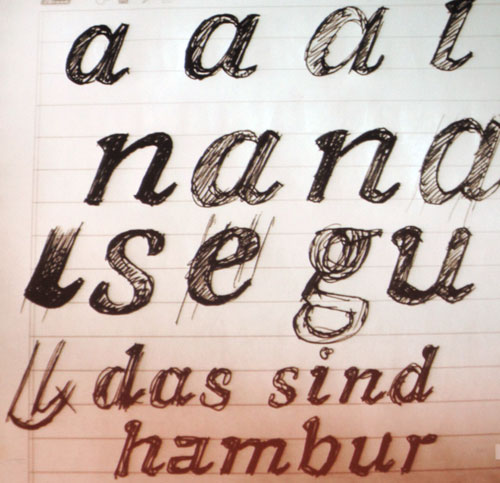 a a a i
nana
ısegu
das sind
hambur